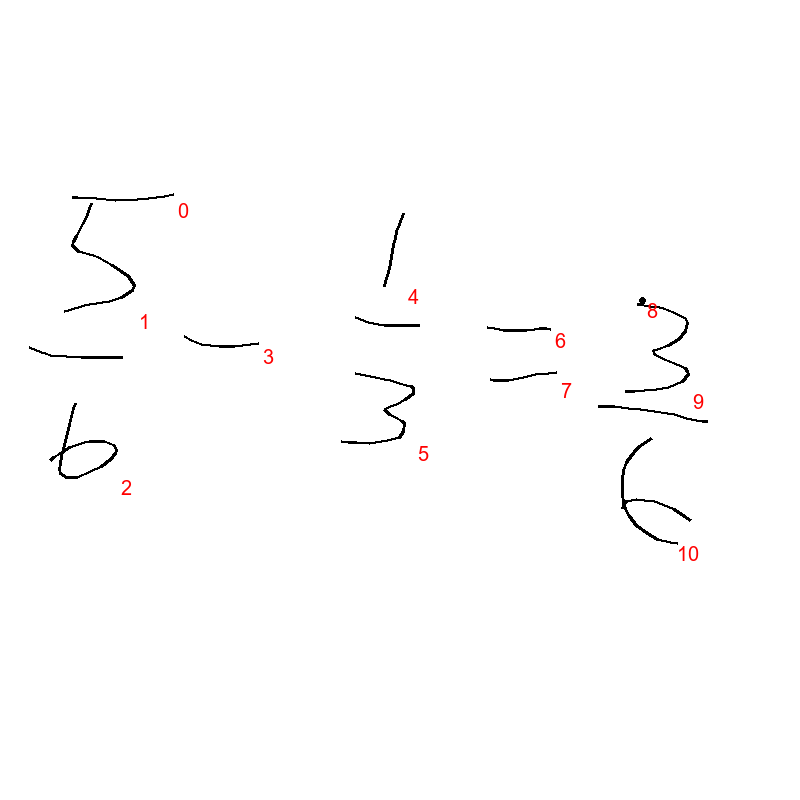 5/6 - 1/3 = 3/6
0
1
2
3
4
5
6
7
8
9
10